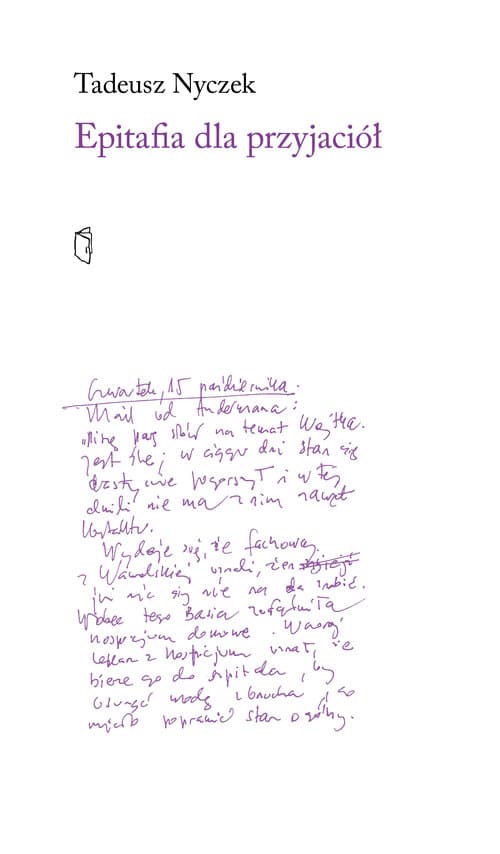 Tadeusz Nyczek
Epitafia dla przyjaciół
Czwartek, 15 października.
Mail od Andermana:
parę słów na temat Wojtka.
Jest źle; w ciągu dni stan się
i w tej
chwili nie ma z nim nawet
kontaktu.
Wydaje się, że fachowcy
z uznali, że
już nic się nie na da zrobić.
Wobec tego Basia załatwiła
hospicjum domowe. Wczoraj
lekarz z hospicjum uznał, że
bierze go do szpitala, by
wodę z brzucha, co
poprawić stan ogólny.